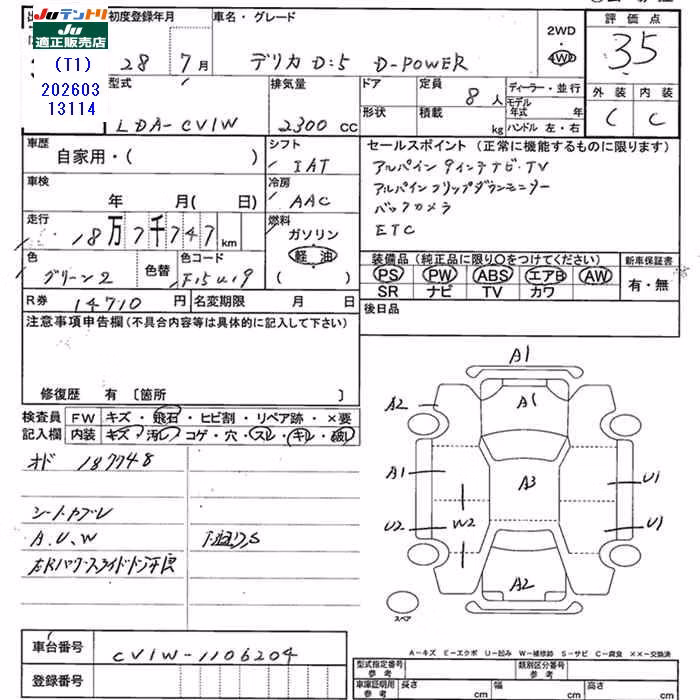 Juテントリ
Ju適正販売店
(T1)
202603
13114
初度登録年月
28年7月
車名・グレード
デリカD:5 D-POWER
2WD
4WD
評価点
3.5
外装 内装
C C
型式
LDA-CV1W
排気量
2300 CC
ドア
形状
定員
8人
積載
kg
ディーラー・並行
モデル年式 年
ハンドル 左・右
車歴
自家用・( )
シフト
IAT
冷房
AAC
車検
年 月( 日)
走行
18万7千747km
燃料
ガソリン
軽油
( )
色
グリーン2
色替
色コード
F15U19
R券 14710円
名変期限 月 日
セールスポイント(正常に機能するものに限ります)
アルパイン9インチナビ・TV
アルパインフリップダウンモニター
バックカメラ
ETC
装備品(純正品に限り○をつけてください)
PS PW ABS エアB AW
SR ナビ TV カワ
新車保証書
有・無
後日品
注意事項申告欄(不具合内容等は具体的に記入して下さい)
修復歴 有〔箇所 〕
検査員記入欄
FW キズ・飛石・ヒビ割・リペア跡・×要
内装 キズ・汚レ・コゲ・穴・スレ・キレ・破レ
オド 187748
シートヤブレ
A.U.W
下廻リS
A1
A2
A1
A1
A3
U1
U2
W2
U1
A2
スペア
A-キズ E-エクボ U-凹み W-補修跡 S-サビ C-腐食 ××-交換済
車台番号 CV1W-1106204
登録番号
型式指定番号 参考
類別区分番号 参考
車庫証明用 参考
長さ cm 幅 cm 高さ cm